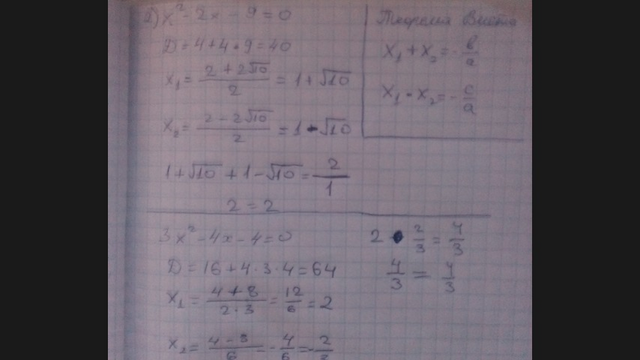 а) x² - 2x - 9 = 0
D = 4 + 4 * 9 = 40
x₁ = (2 + 2√10)/2 = 1 + √10
x₂ = (2 - 2√10)/2 = 1 - √10
1 + √10 + 1 - √10 = 2/1
2 = 2
Теорема Виета
x₁ + x₂ = - b/a
x₁ · x₂ = - c/a
3x² - 4x - 4 = 0
D = 16 + 4 · 3 · 4 = 64
x₁ = (4 + 8)/(2 · 3) = 12/6 = 2
x₂ = (4 - 8)/6 = - 4/6 = - 2/3
2 · 2/3 = 4/3
4/3 = 4/3